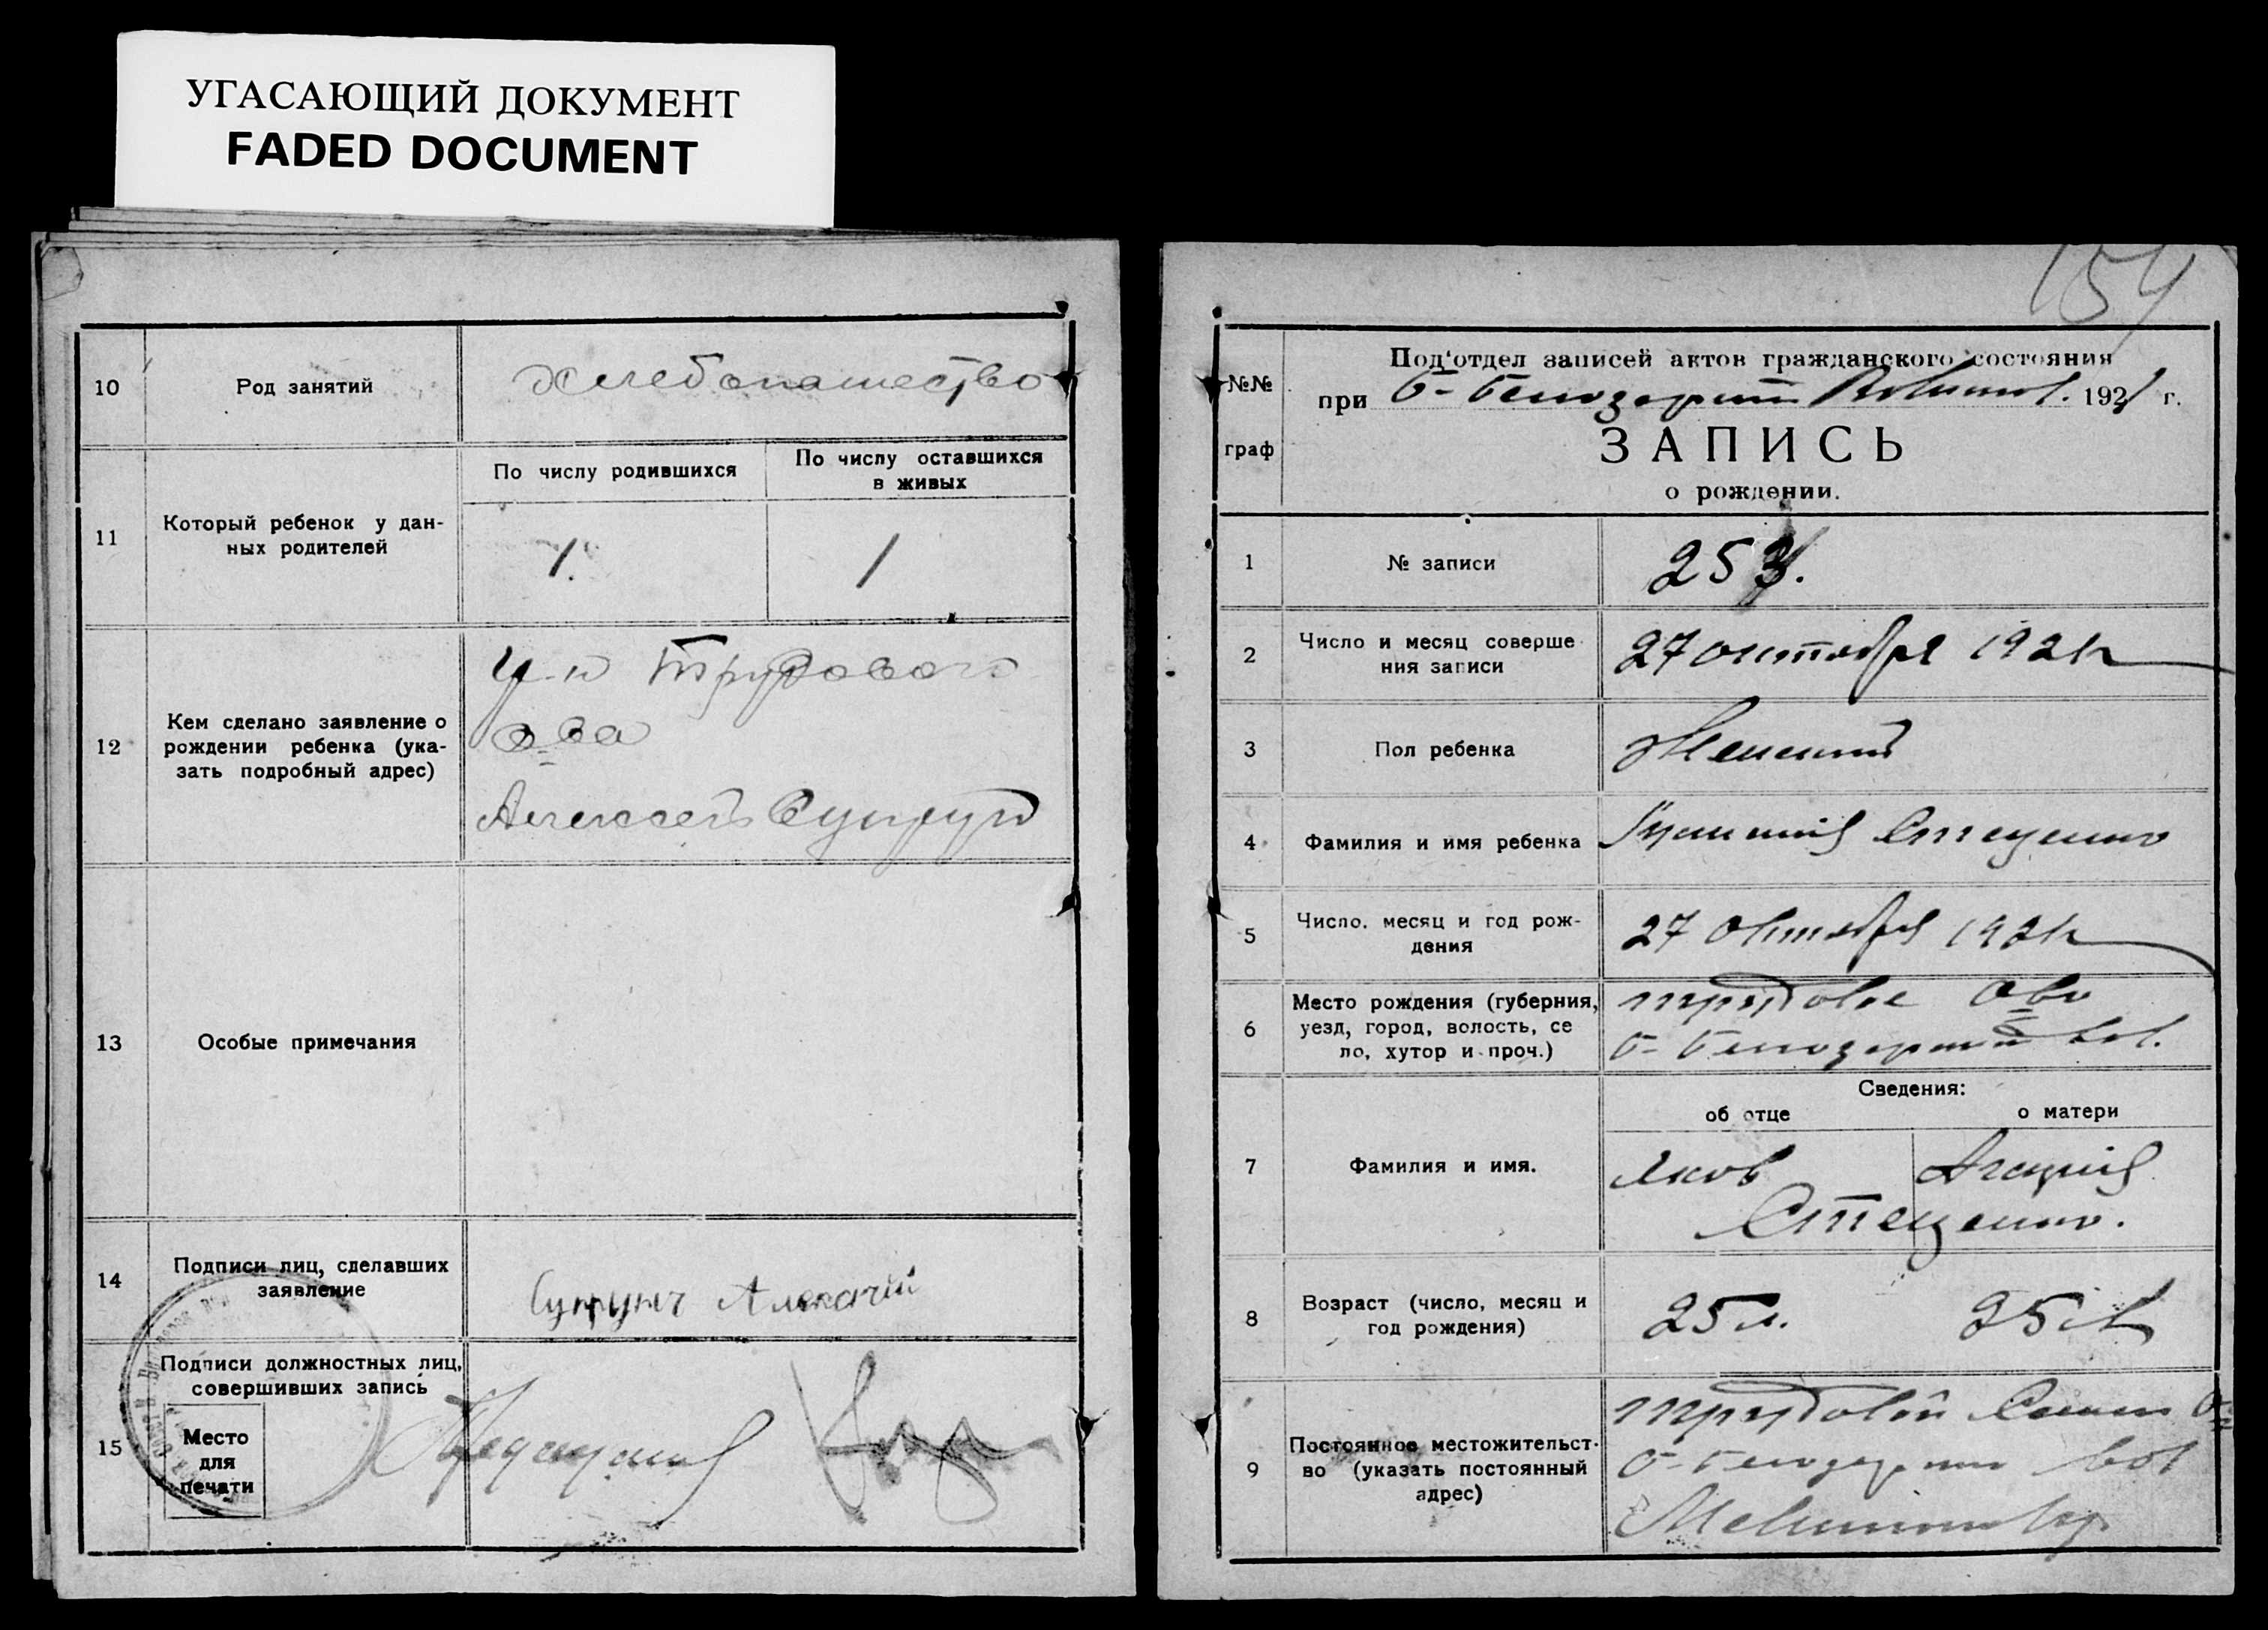 УГАСАЮЩИЙ ДОКУМЕНТ
FADED DOCUMENT
10
Род занятий
хлебопашество
11
Который ребенок у дан-
ных родителей
По числу родившихся
По числу оставшихся
в живых
1.
1
12
Кем сделано заявление о
рождении ребенка (ука-
зать подробный адрес)
Трудового
о-ва
Алексей Супрун
13
Особые примечания
14
Подписи лиц, сделавших
заявление
Супрунъ Алексей
15
Подписи должностных лиц,
совершивших запись
Место
для
печати
154
№№
граф
Под'отдел записей актов гражданского состояния
при Б- 1921 г.
ЗАПИСЬ
о рождении.
1
№ записи
253.
2
Число и месяц соверше
ния записи
27 октября 1921 г
3
Пол ребенка
Женский
4
Фамилия и имя ребенка
Стеценко
5
Число, месяц и год рож-
дения
27 Октября 1921 г
6
Место рождения (губерния,
уезд, город, волость, се
ло, хутор и проч.)
трудовое О-во
вол.
7
Фамилия и имя.
Сведения:
об отце
о матери
Яков
Стеценко.
8
Возраст (число, месяц и
год рождения)
25 л.
25 л
9
Постоянное местожительст-
во (указать постоянный
адрес)
трудовой
вол